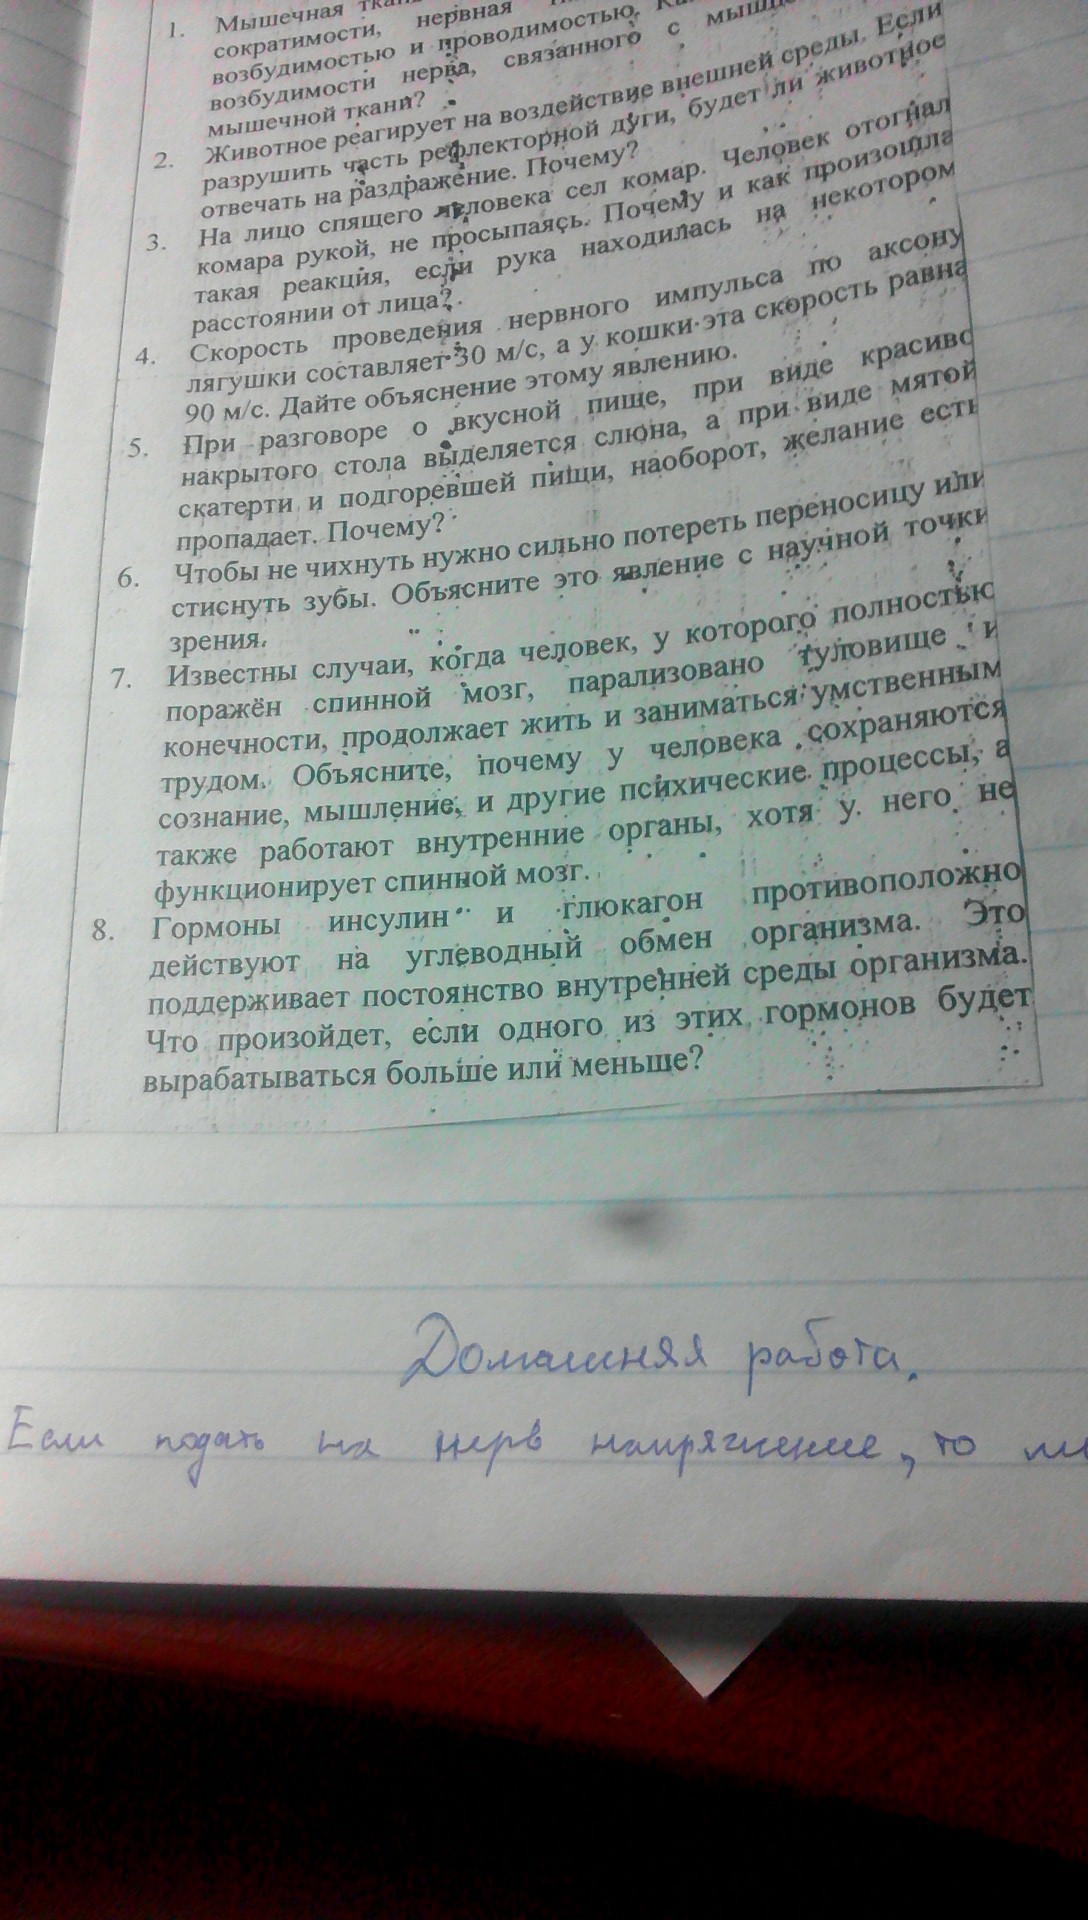 1. Мышечная
сократимости, нервная
возбудимостью и проводимостью.
возбудимости нерва, связанного с
мышечной ткани?
2. Животное реагирует на воздействие внешней среды. Если
разрушить часть рефлекторной дуги, будет ли животное
отвечать на раздражение. Почему?
3. На лицо спящего человека сел комар. Человек отогнал
комара рукой, не просыпаясь. Почему и как произошла
такая реакция, если рука находилась на некотором
расстоянии от лица?
4. Скорость проведения нервного импульса по аксону
лягушки составляет 30 м/с, а у кошки эта скорость равна
90 м/с. Дайте объяснение этому явлению.
5. При разговоре о вкусной пище, при виде красиво
накрытого стола выделяется слюна, а при виде мятой
скатерти и подгоревшей пищи, наоборот, желание есть
пропадает. Почему?
6. Чтобы не чихнуть нужно сильно потереть переносицу или
стиснуть зубы. Объясните это явление с научной точки
зрения.
7. Известны случаи, когда человек, у которого полностью
поражён спинной мозг, парализовано туловище и
конечности, продолжает жить и заниматься умственным
трудом. Объясните, почему у человека сохраняются
сознание, мышление, и другие психические процессы, а
также работают внутренние органы, хотя у него не
функционирует спинной мозг.
8. Гормоны инсулин и глюкагон противоположно
действуют на углеводный обмен организма. Это
поддерживает постоянство внутренней среды организма.
Что произойдет, если одного из этих гормонов будет
вырабатываться больше или меньше?
Домашняя работа.
Если подать на нерв напряжение, то